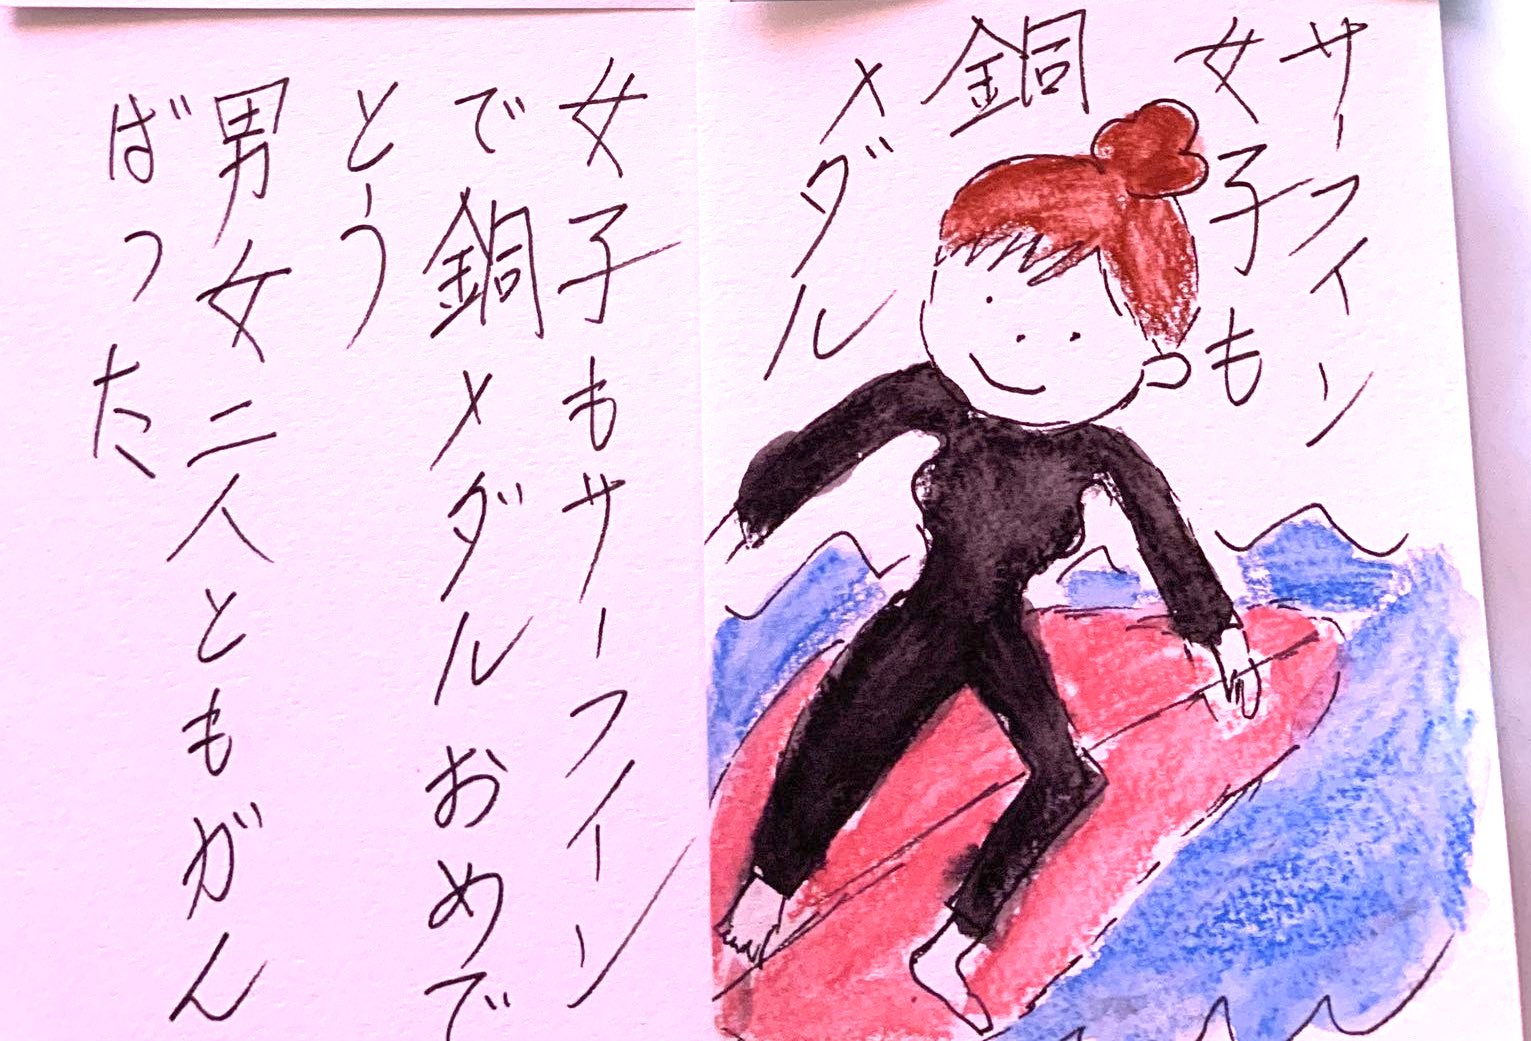 サーフィン
女子も
銅
メダル
女子もサーフィン
で銅メダルおめで
とう
男女二人ともがん
ばった